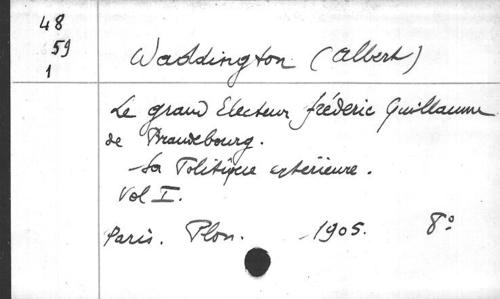 48
59
1
Waddington (Albert)
Le grand Electeur frédéric Guillaume
de Brandebourg.
– Sa Politique extérieure.
Vol I.
Paris. Plon. – 1905. 8°